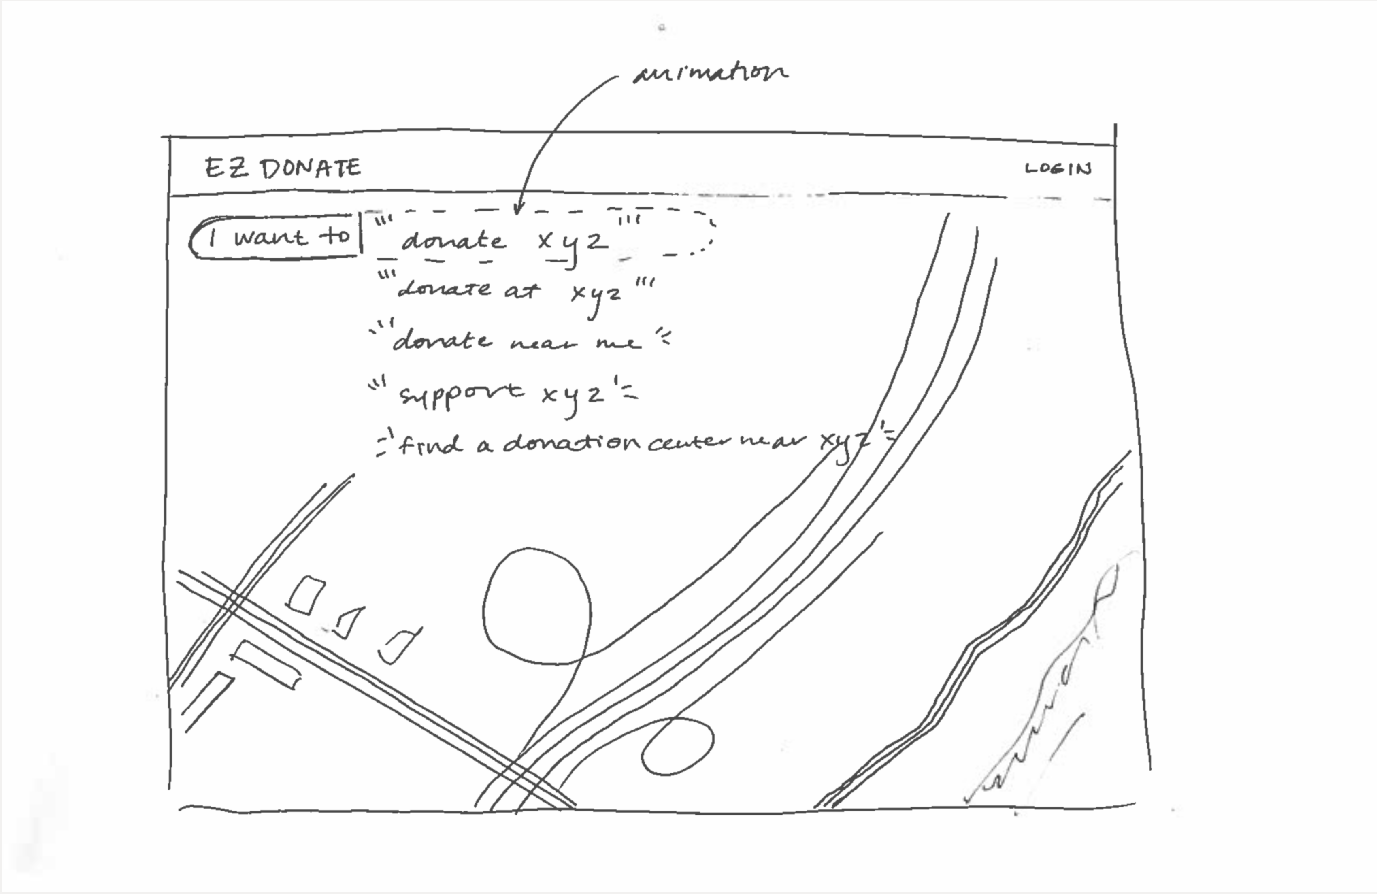 animation
EZ DONATE
LOGIN
I want to "donate xyz"
"donate at xyz"
"donate near me"
"support xyz"
"find a donation center near xyz"